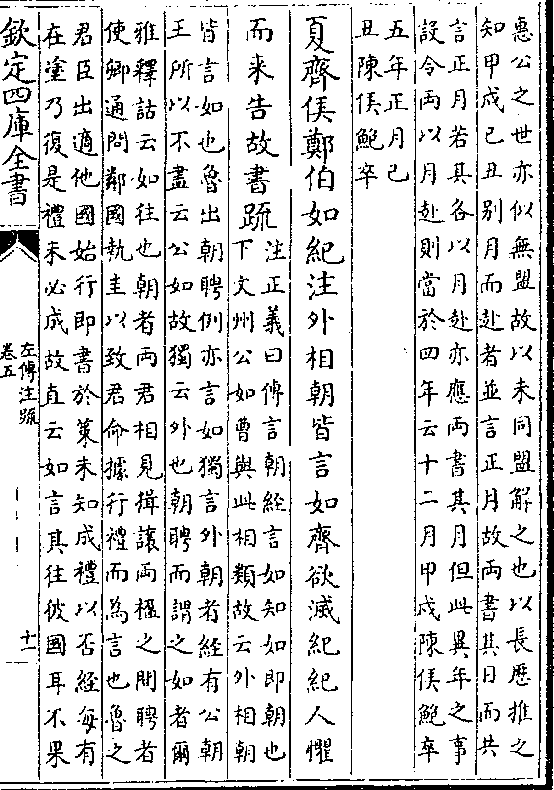 惠公之世亦似無盟故以未同盟解之也以長歴推之
知甲戌己丑别月而赴者並言正月故兩書其日而共
言正月若其各以月赴亦應兩書其月但此異年之事
設令兩以月赴則當於四年云十二月甲戌陳侯鮑卒
五年正月己
丑陳侯鮑卒
夏齊侯鄭伯如紀注外相朝皆言如齊欲滅紀紀人懼
而來告故書疏
注正義曰傳言朝經言如知如即朝也
下文州公如曹與此相類故云外相朝
皆言如也魯出朝聘例亦言如獨言外朝者經有公朝
王所以不盡云公如故獨云外也朝聘而謂之如者爾
雅釋詁云如往也朝者兩君相見揖讓兩楹之間聘者
使卿通問鄰國執圭以致君命據行禮而為言也魯之
君臣出適他國始行即書於策未知成禮以否經每有
在塗乃復是禮未必成故直云如言其往彼國耳不果
欽定四庫全書
左傳注疏
卷五
十一